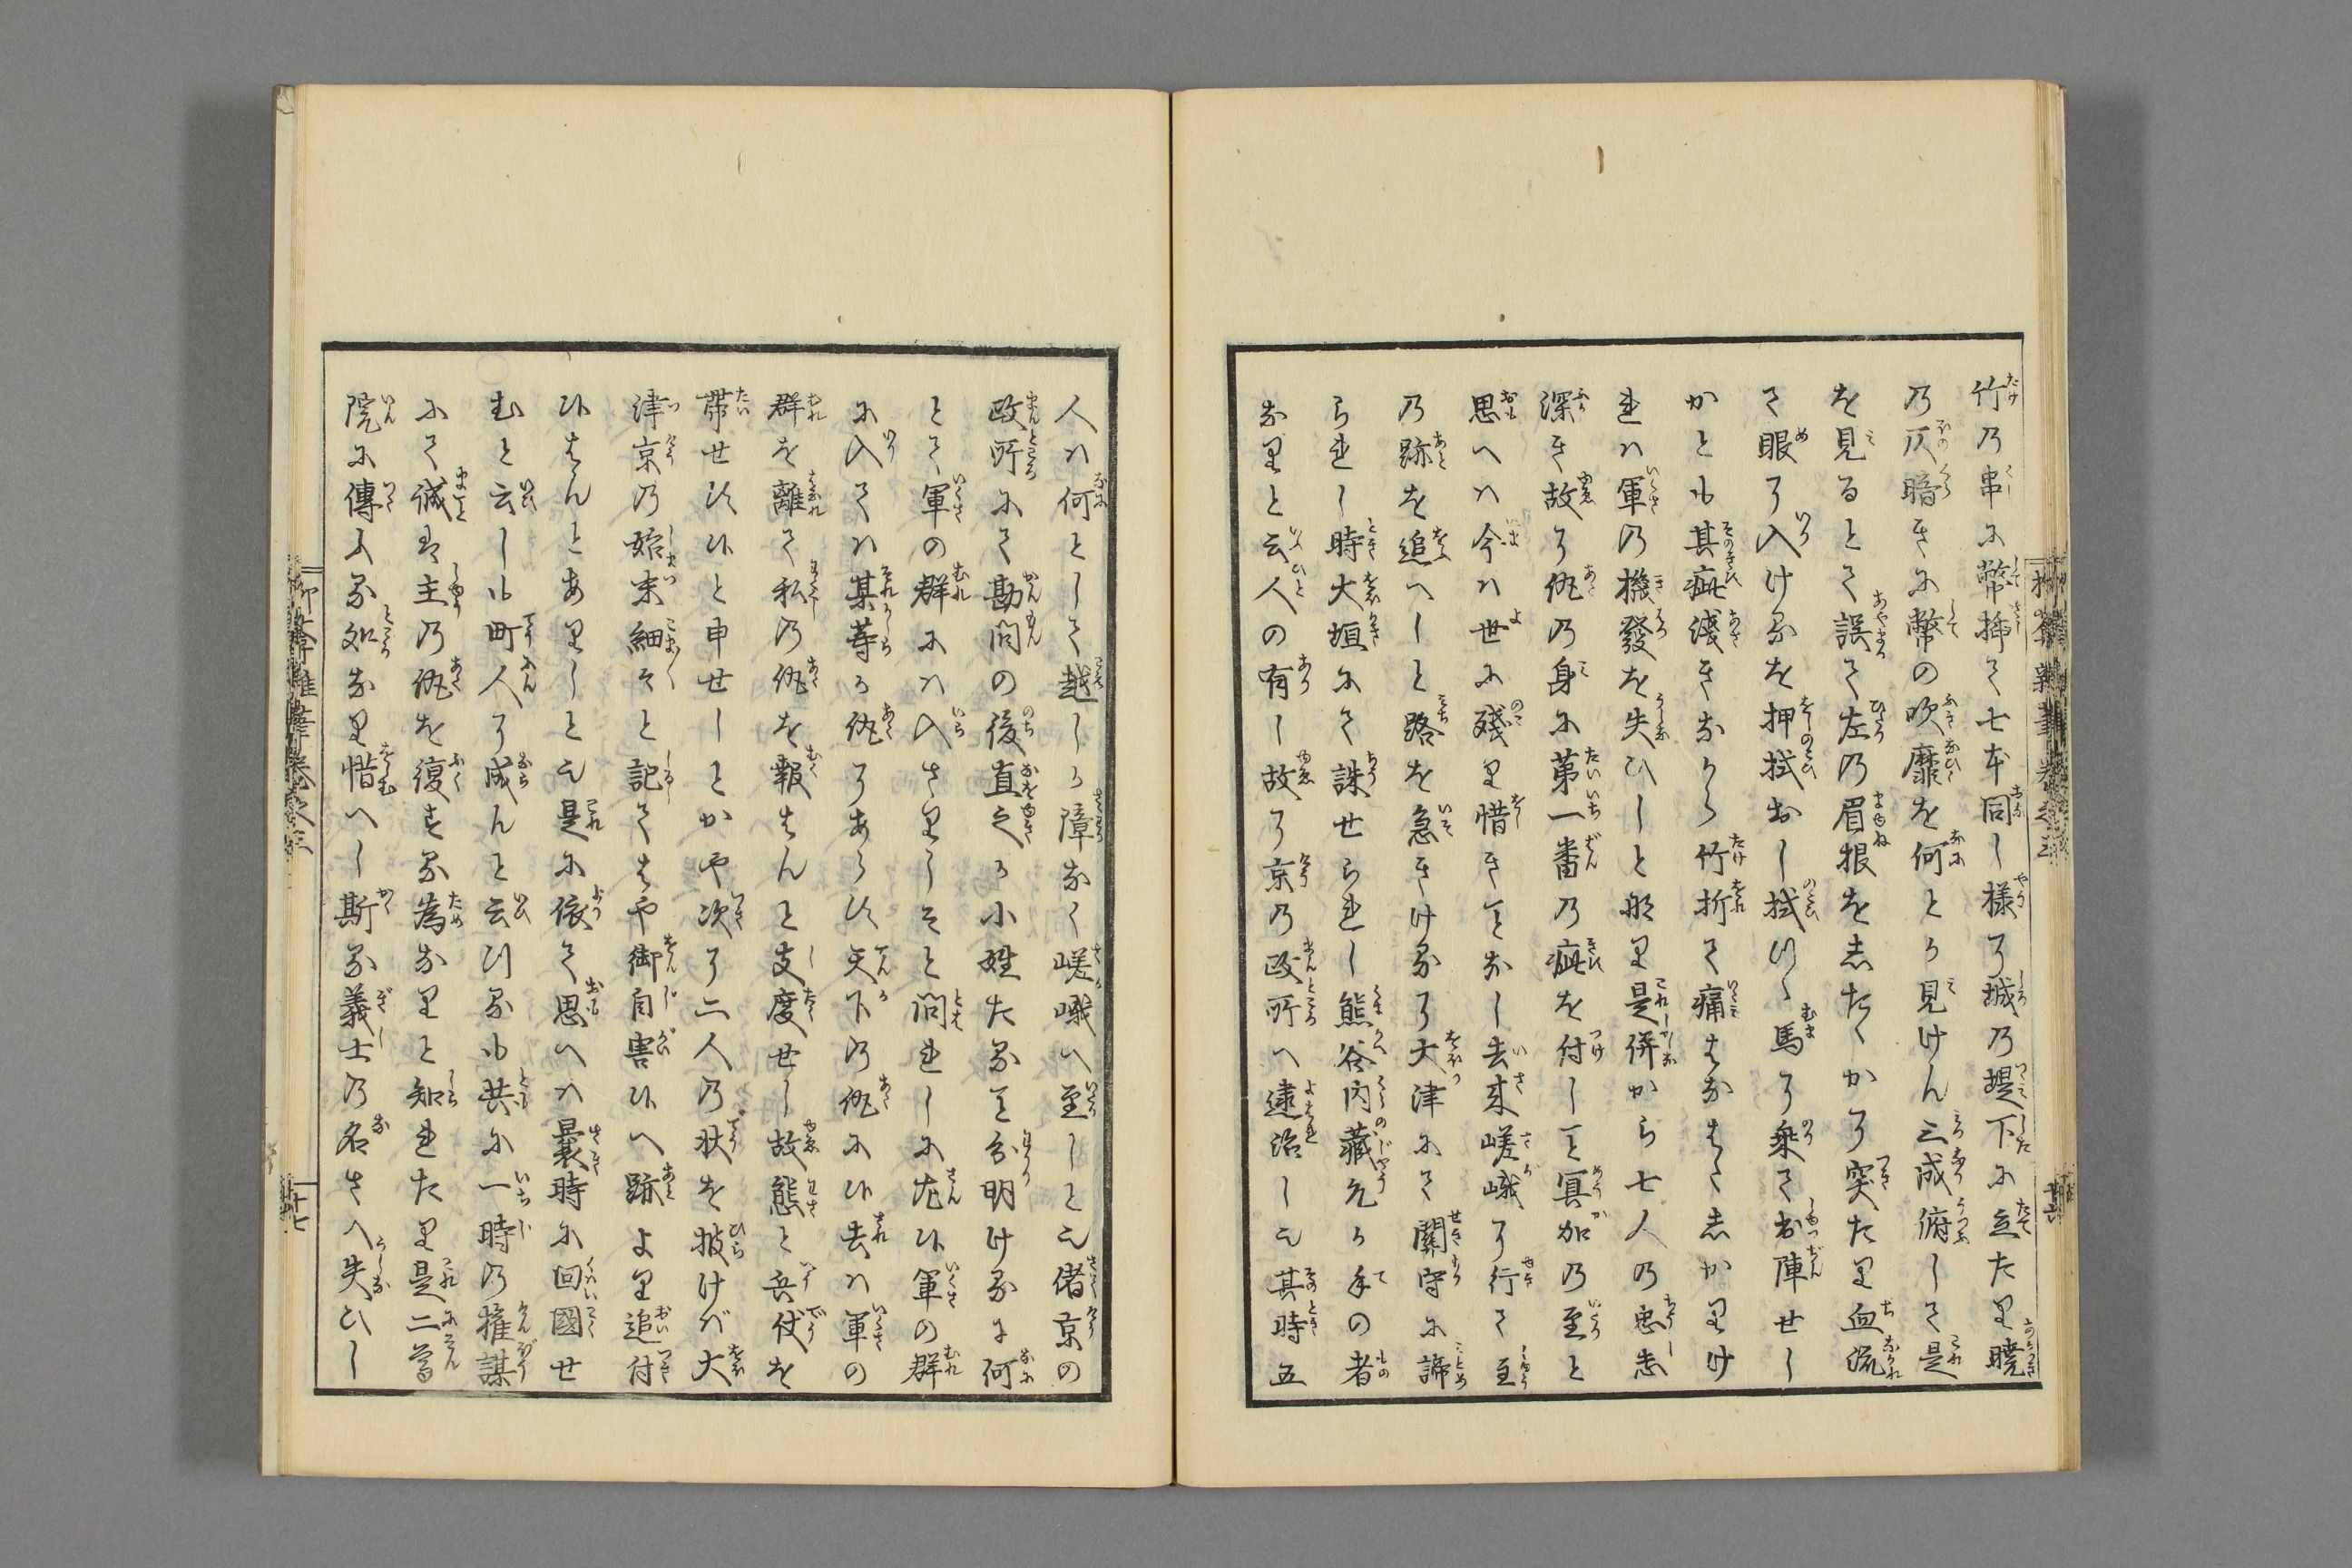 竹乃串に幣挿て七本同し様に城乃堤下に立たり暁
乃仄暗きに幣の吹靡を何とか見けん三成俯して是
を見るとて誤て左乃眉根をしたゝかに突たり血流
て眼に入けるを押拭おし拭ひつゝ馬に乗て出陣せし
かとも其疵浅きなから竹折て痛はなはたしかりけ
れは軍乃機發を失ひしと那り是併から七人の忠志
深き故に仇乃身に第一番乃疵を付しこと冥加乃至と
思へは今は世に残り惜きことなし去来嵯峨に行て主
乃跡を追へしと路を急きけるに大津にて關守に諦
られし時大垣にて誅せられし熊谷内藏允か手の者
なりと云人の有し故に京乃政所へ逮治しも其時五
人は何として越しか障なく嵯峨へ至しとも偖京の
政所にて勘問の後直之か小姓たること分明けるに何
とて軍の群には入さりしそと問れしに尤候軍の群
に入ては某等か仇にあらす天下乃仇に候去は軍の
群を離て私乃仇を報はんと支度せし故態と兵仗を
帯せす候と申せしとかや次に二人乃状を披けば大
津京乃始末細々と記てはや御自害候へ跡より追付
候はんとありしとも是に依て思へは曩時に回國せ
むと云しも町人に成んと云ひつるも共に一時乃権謀
にて誠は主乃仇を復する為なりと知れたり是二尊
院に傳ふる処なり惜へし斯る義士乃名さへ失ひし